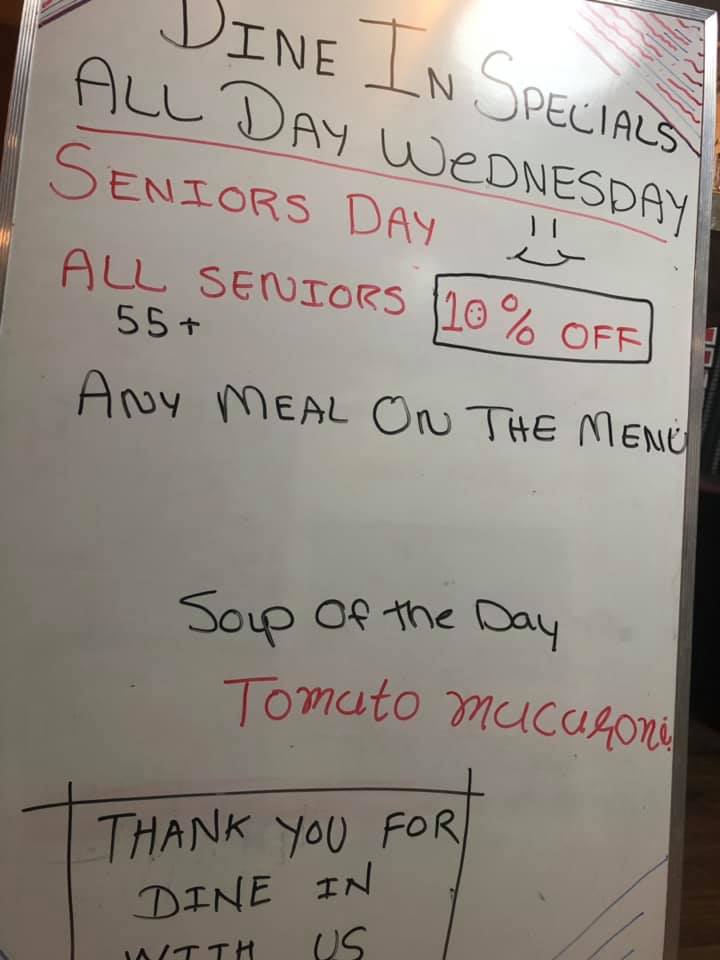 DINE IN SPECIALS
ALL DAY WeDNESDAY
SENIORS DAY
ALL SENIORS 10% OFF
55+
ANY MEAL ON THE MENU
Soup Of the Day
Tomato macaroni
THANK YOU FOR
DINE IN
WITH US